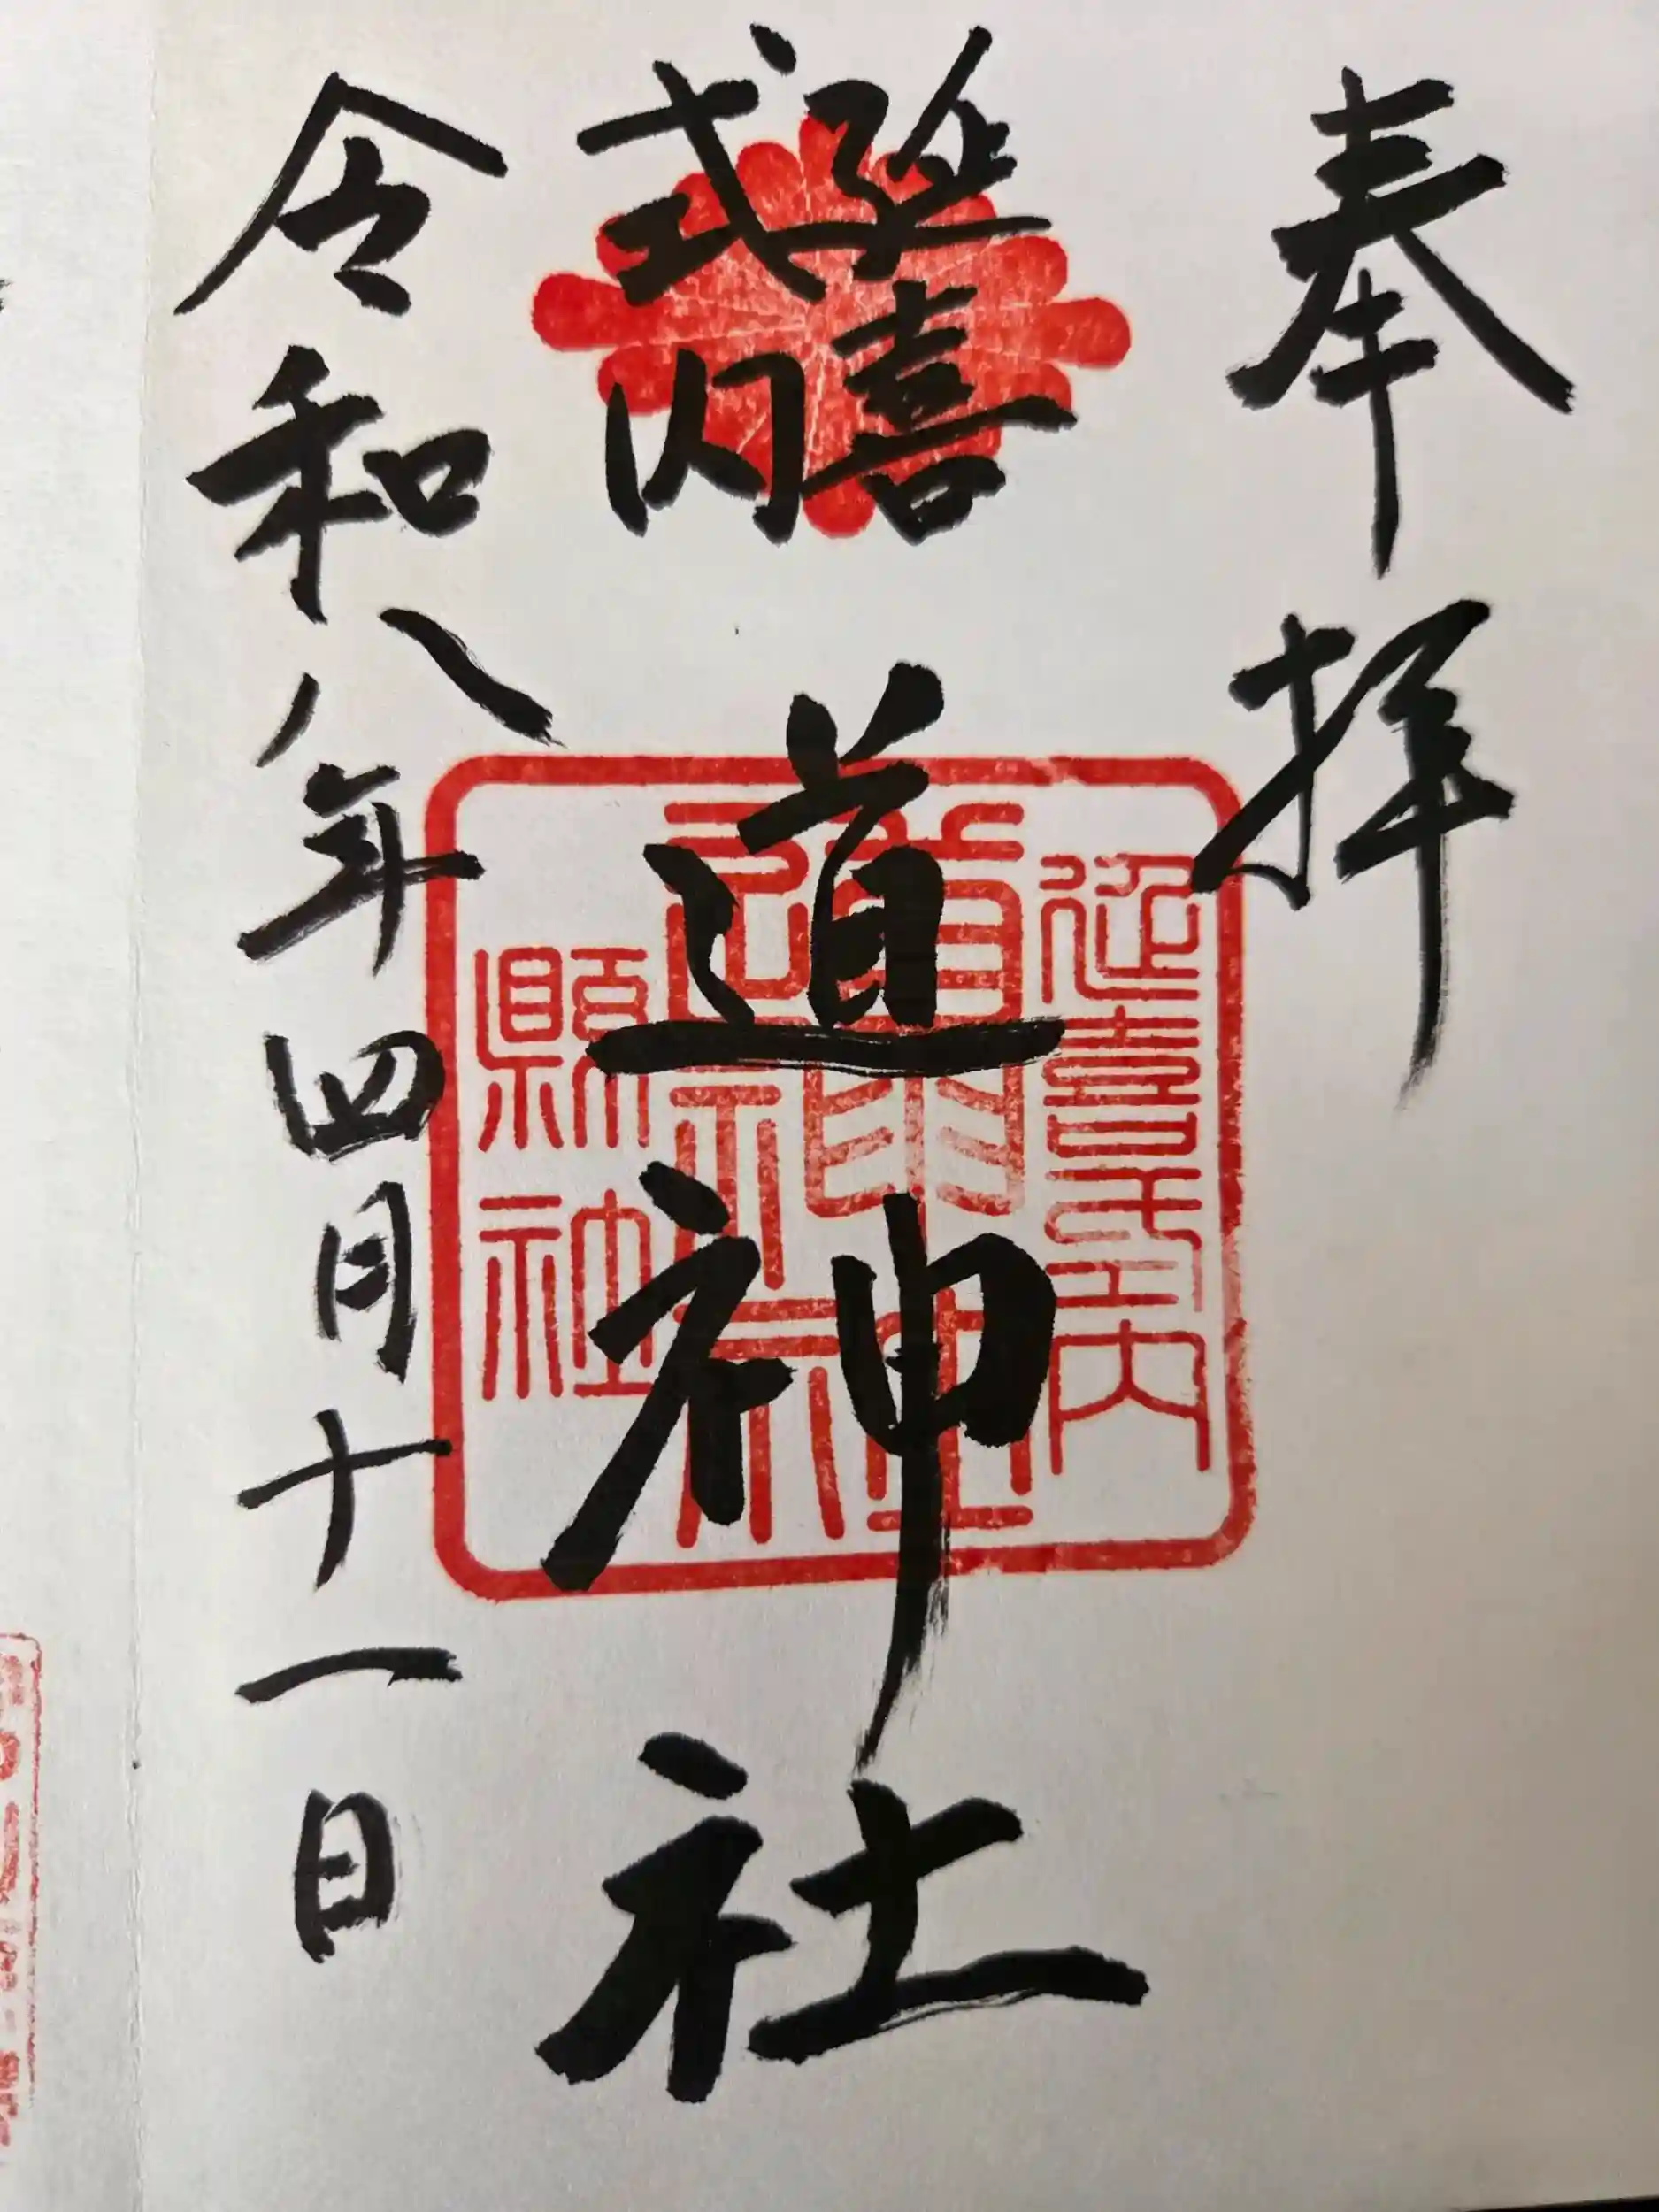 奉拝
延喜
式内
道神社
令和八年四月十一日
延喜式内
道神社
縣社